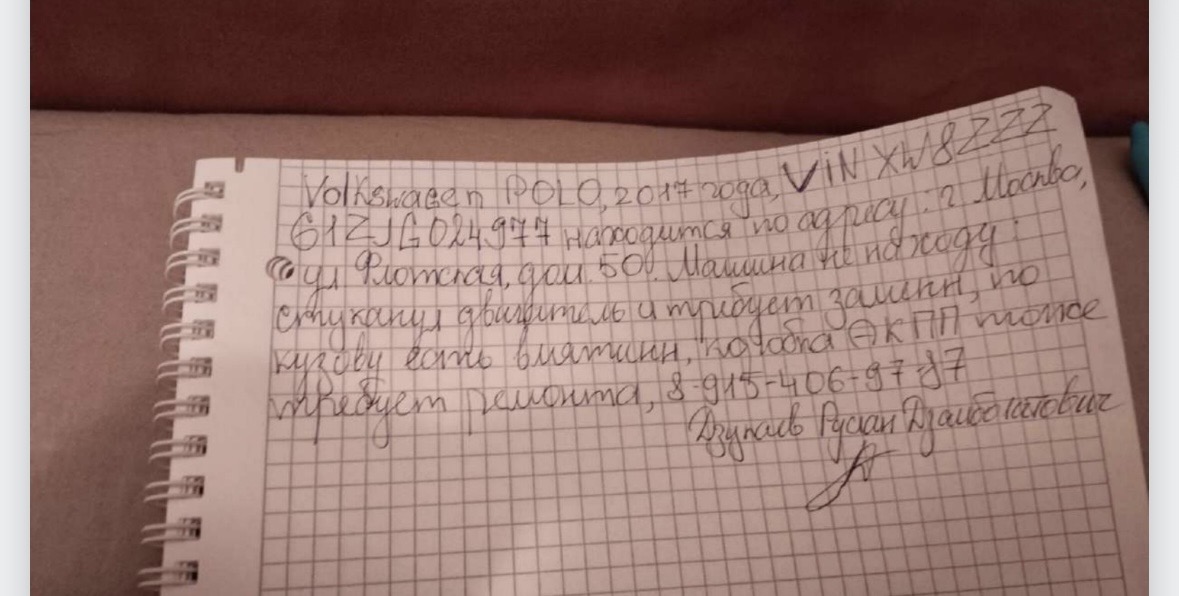 Volkswagen POLO, 2017 года, ViN XW8ZZZ
61ZJG024977 находится по адресу: г Москва,
ул Флотская, дом 50. Машина не на ходу:
стуканул двигатель и требует замени, по
кузову есть вмятини, коробка АКПП тоже
требует ремонта, 8-915-406-97-87
Руслан